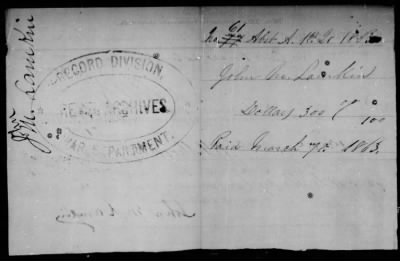 Jno
J. M. Lamkin
RECORD DIVISION,
REBEL ARCHIVES
WAR DEPARTMENT.
61
No 77 Abst A. 1st Qr 1863
John M. Lamkin
Dollars 300 00/100
Paid March 7th 1863.
John M Lamkin